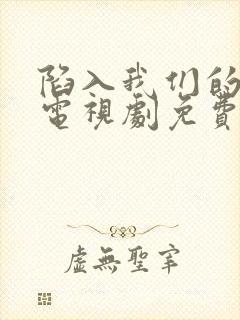 陷入我们的
電視劇免費
虛無聖宰